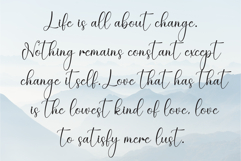 Life is all about change.
Nothing remains constant except
change itself. Love that has that
is the lowest kind of love. love
to satisfy mere lust.